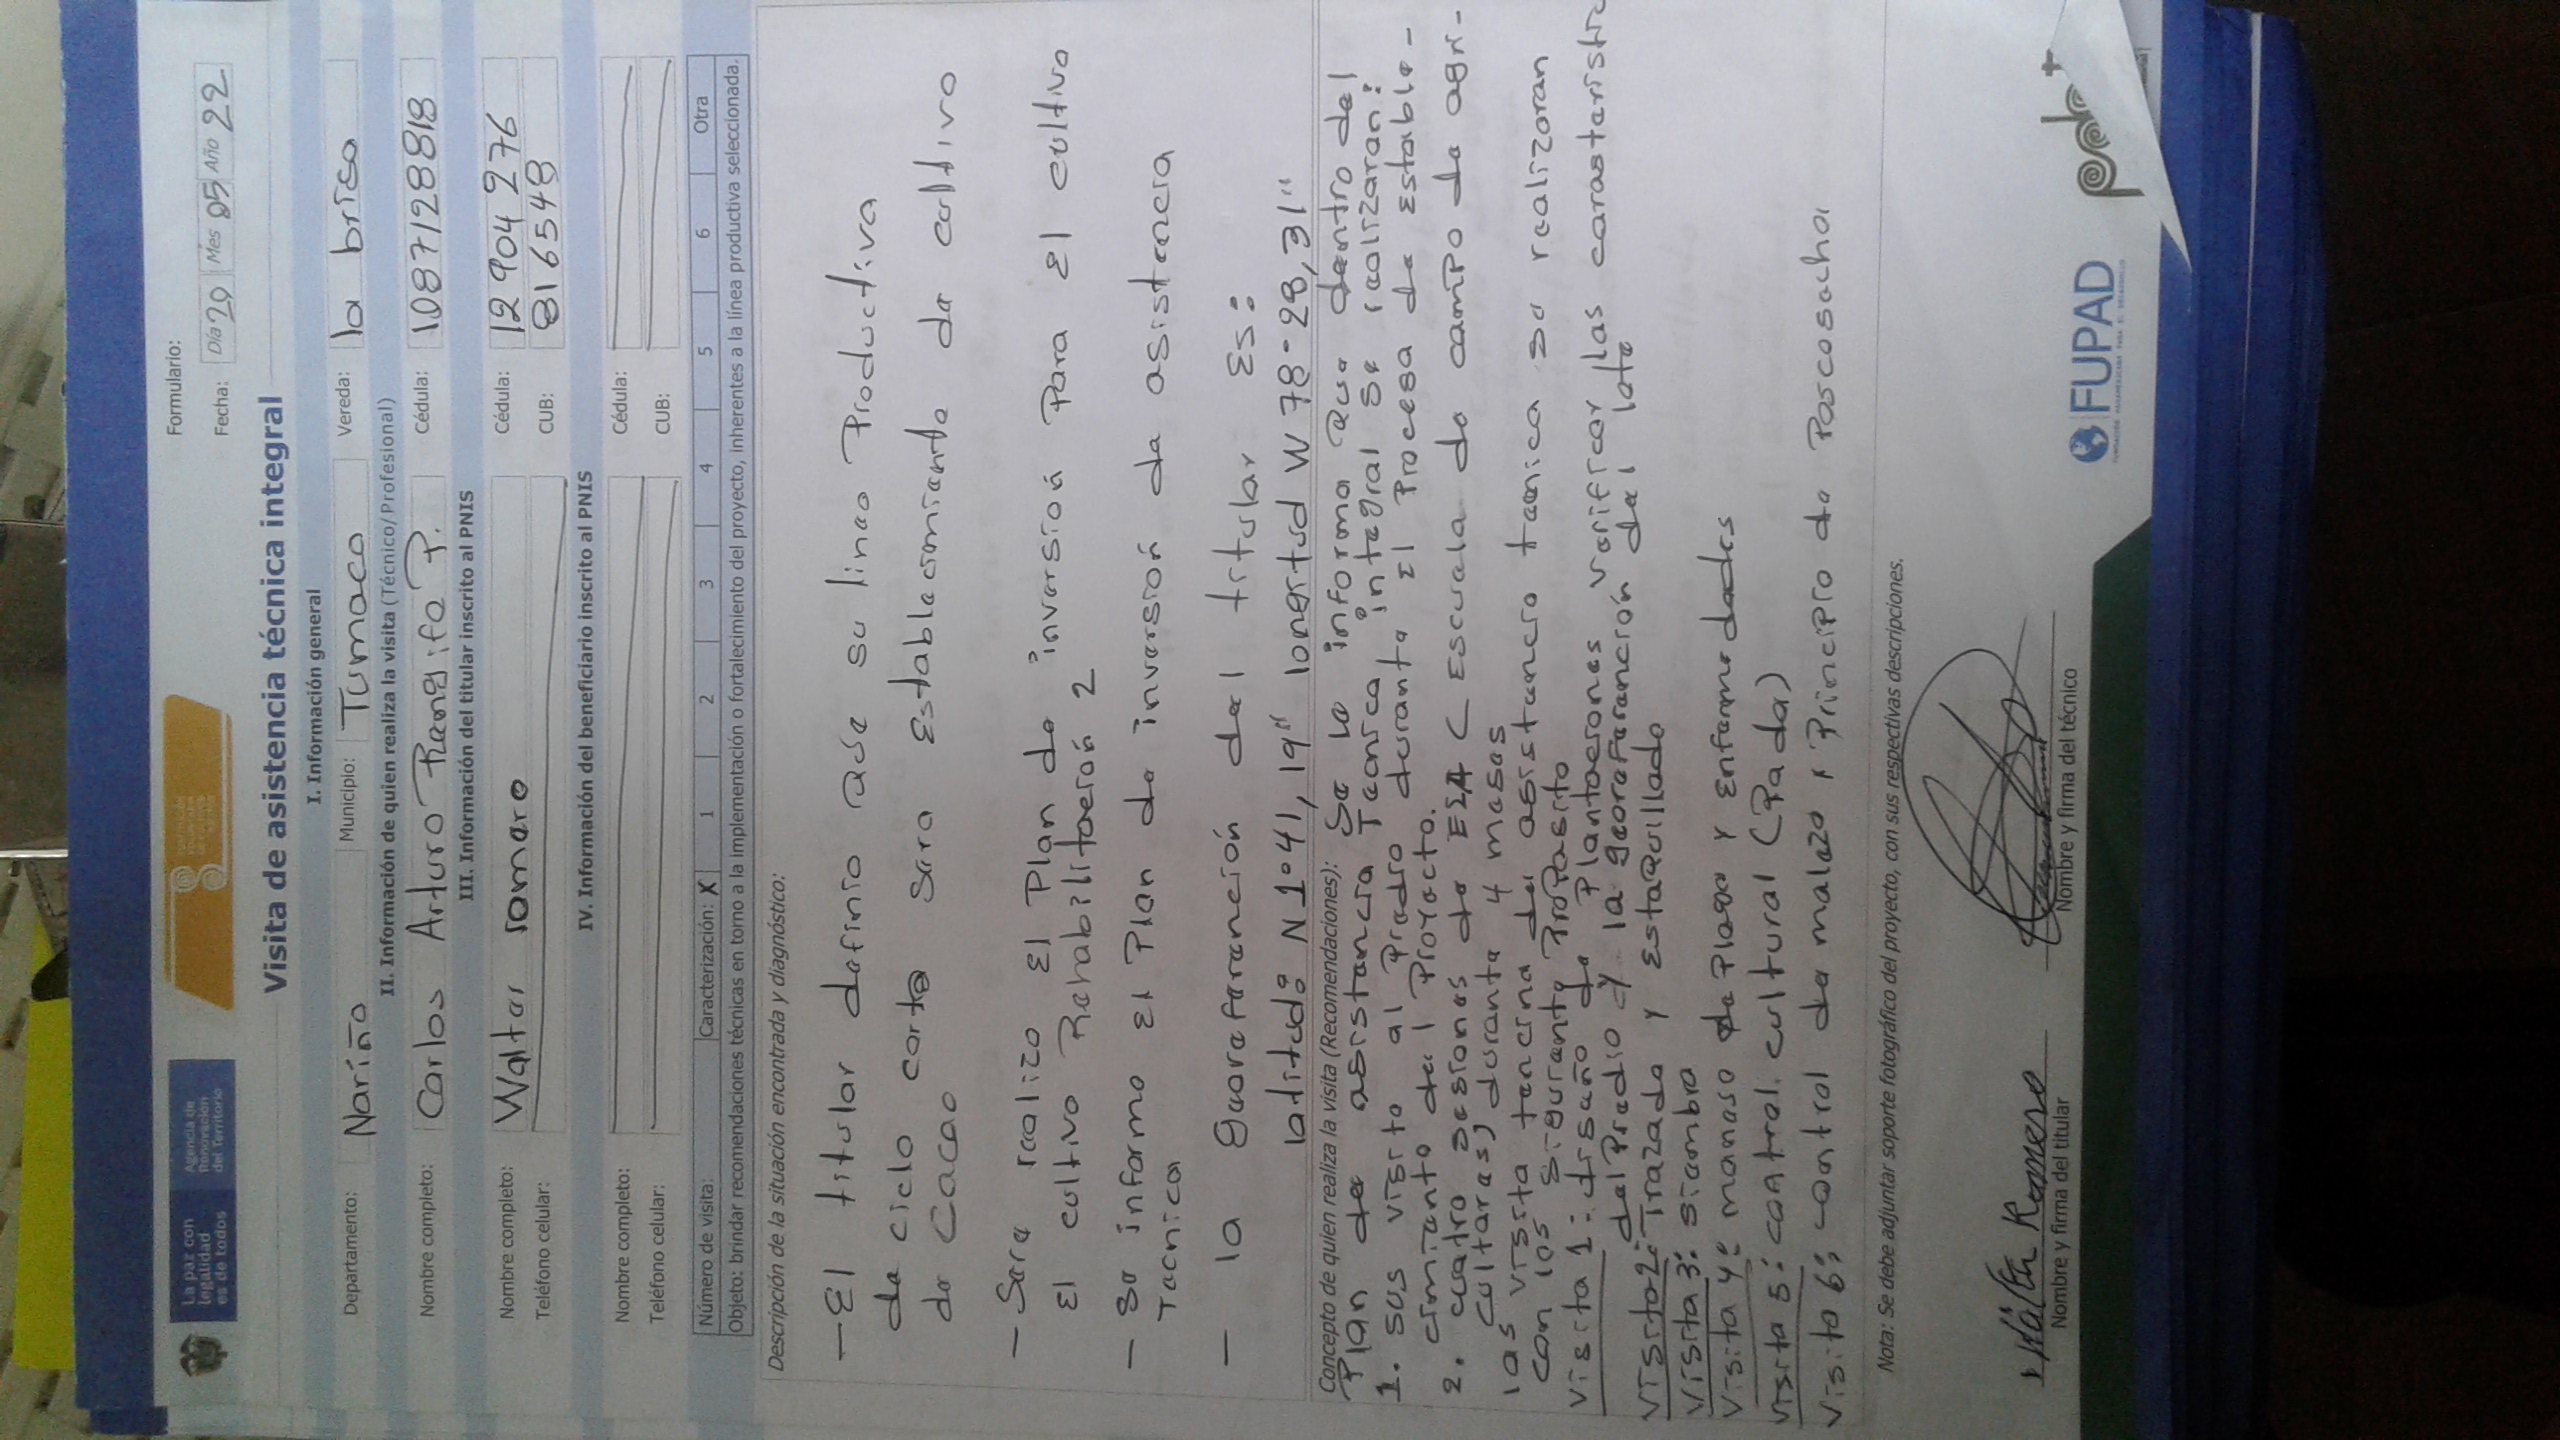 La paz con
legalidad
es de todos
Agencia de
Renovación
del Territorio
Formulario:
Fecha: Día 20 Mes 05 Año 22
Visita de asistencia técnica integral
I. Información general
Departamento: Nariño Municipio: Tumaco Vereda: la brisa
II. Información de quien realiza la visita (Técnico/Profesional)
Nombre completo: Carlos Arturo Rengifo P. Cédula: 1087128818
III. Información del titular inscrito al PNIS
Nombre completo: Walter romero Cédula: 12904276
Teléfono celular: CUB: 816548
IV. Información del beneficiario inscrito al PNIS
Nombre completo: Cédula:
Teléfono celular: CUB:
Número de visita: Caracterización: X 1 2 3 4 5 6 Otra
Objeto: brindar recomendaciones técnicas en torno a la implementación o fortalecimiento del proyecto, inherentes a la línea productiva seleccionada.
Descripción de la situación encontrada y diagnóstico:
- El titular definio que su linea Productiva
de ciclo corto sera Establecimiento de cultivo
de Cacao
- Sere realizo El Plan de inversión Para El cultivo
El cultivo Rehabilitación 2
- Se informo El Plan de inversión de asistencia
Tecnica
- la georeferención del titular ES:
latitud: N 1°41,19" longitud W 78°28,31"
Concepto de quien realiza la visita (Recomendaciones): Se le informa que dentro del
Plan de asistencia Tecnica integral se realizaran:
1. sus visita al Predio durante El Proceso de estable-
cimiento del Proyecto.
2. cuatro sesiones de ECA (Escuela de campo de agri-
cultores) durante 4 meses
las visita tencina de asistencia tecnica se realizaran
con los siguiente Proposito
Visita 1: diseño de Plantaciones verificar las
del Predio y la georeferención del lote
Visita 2: Trazado y Estaquillado
Visita 3: siembra
Visita 4: manejo de Plaga y Enfermedades
Visita 5: control cultural (Poda)
Visita 6: control de maleza, Principio de Poscosecha
Nota: Se debe adjuntar soporte fotográfico del proyecto, con sus respectivas descripciones.
Walter Romero
Nombre y firma del titular
Nombre y firma del técnico
FUPAD